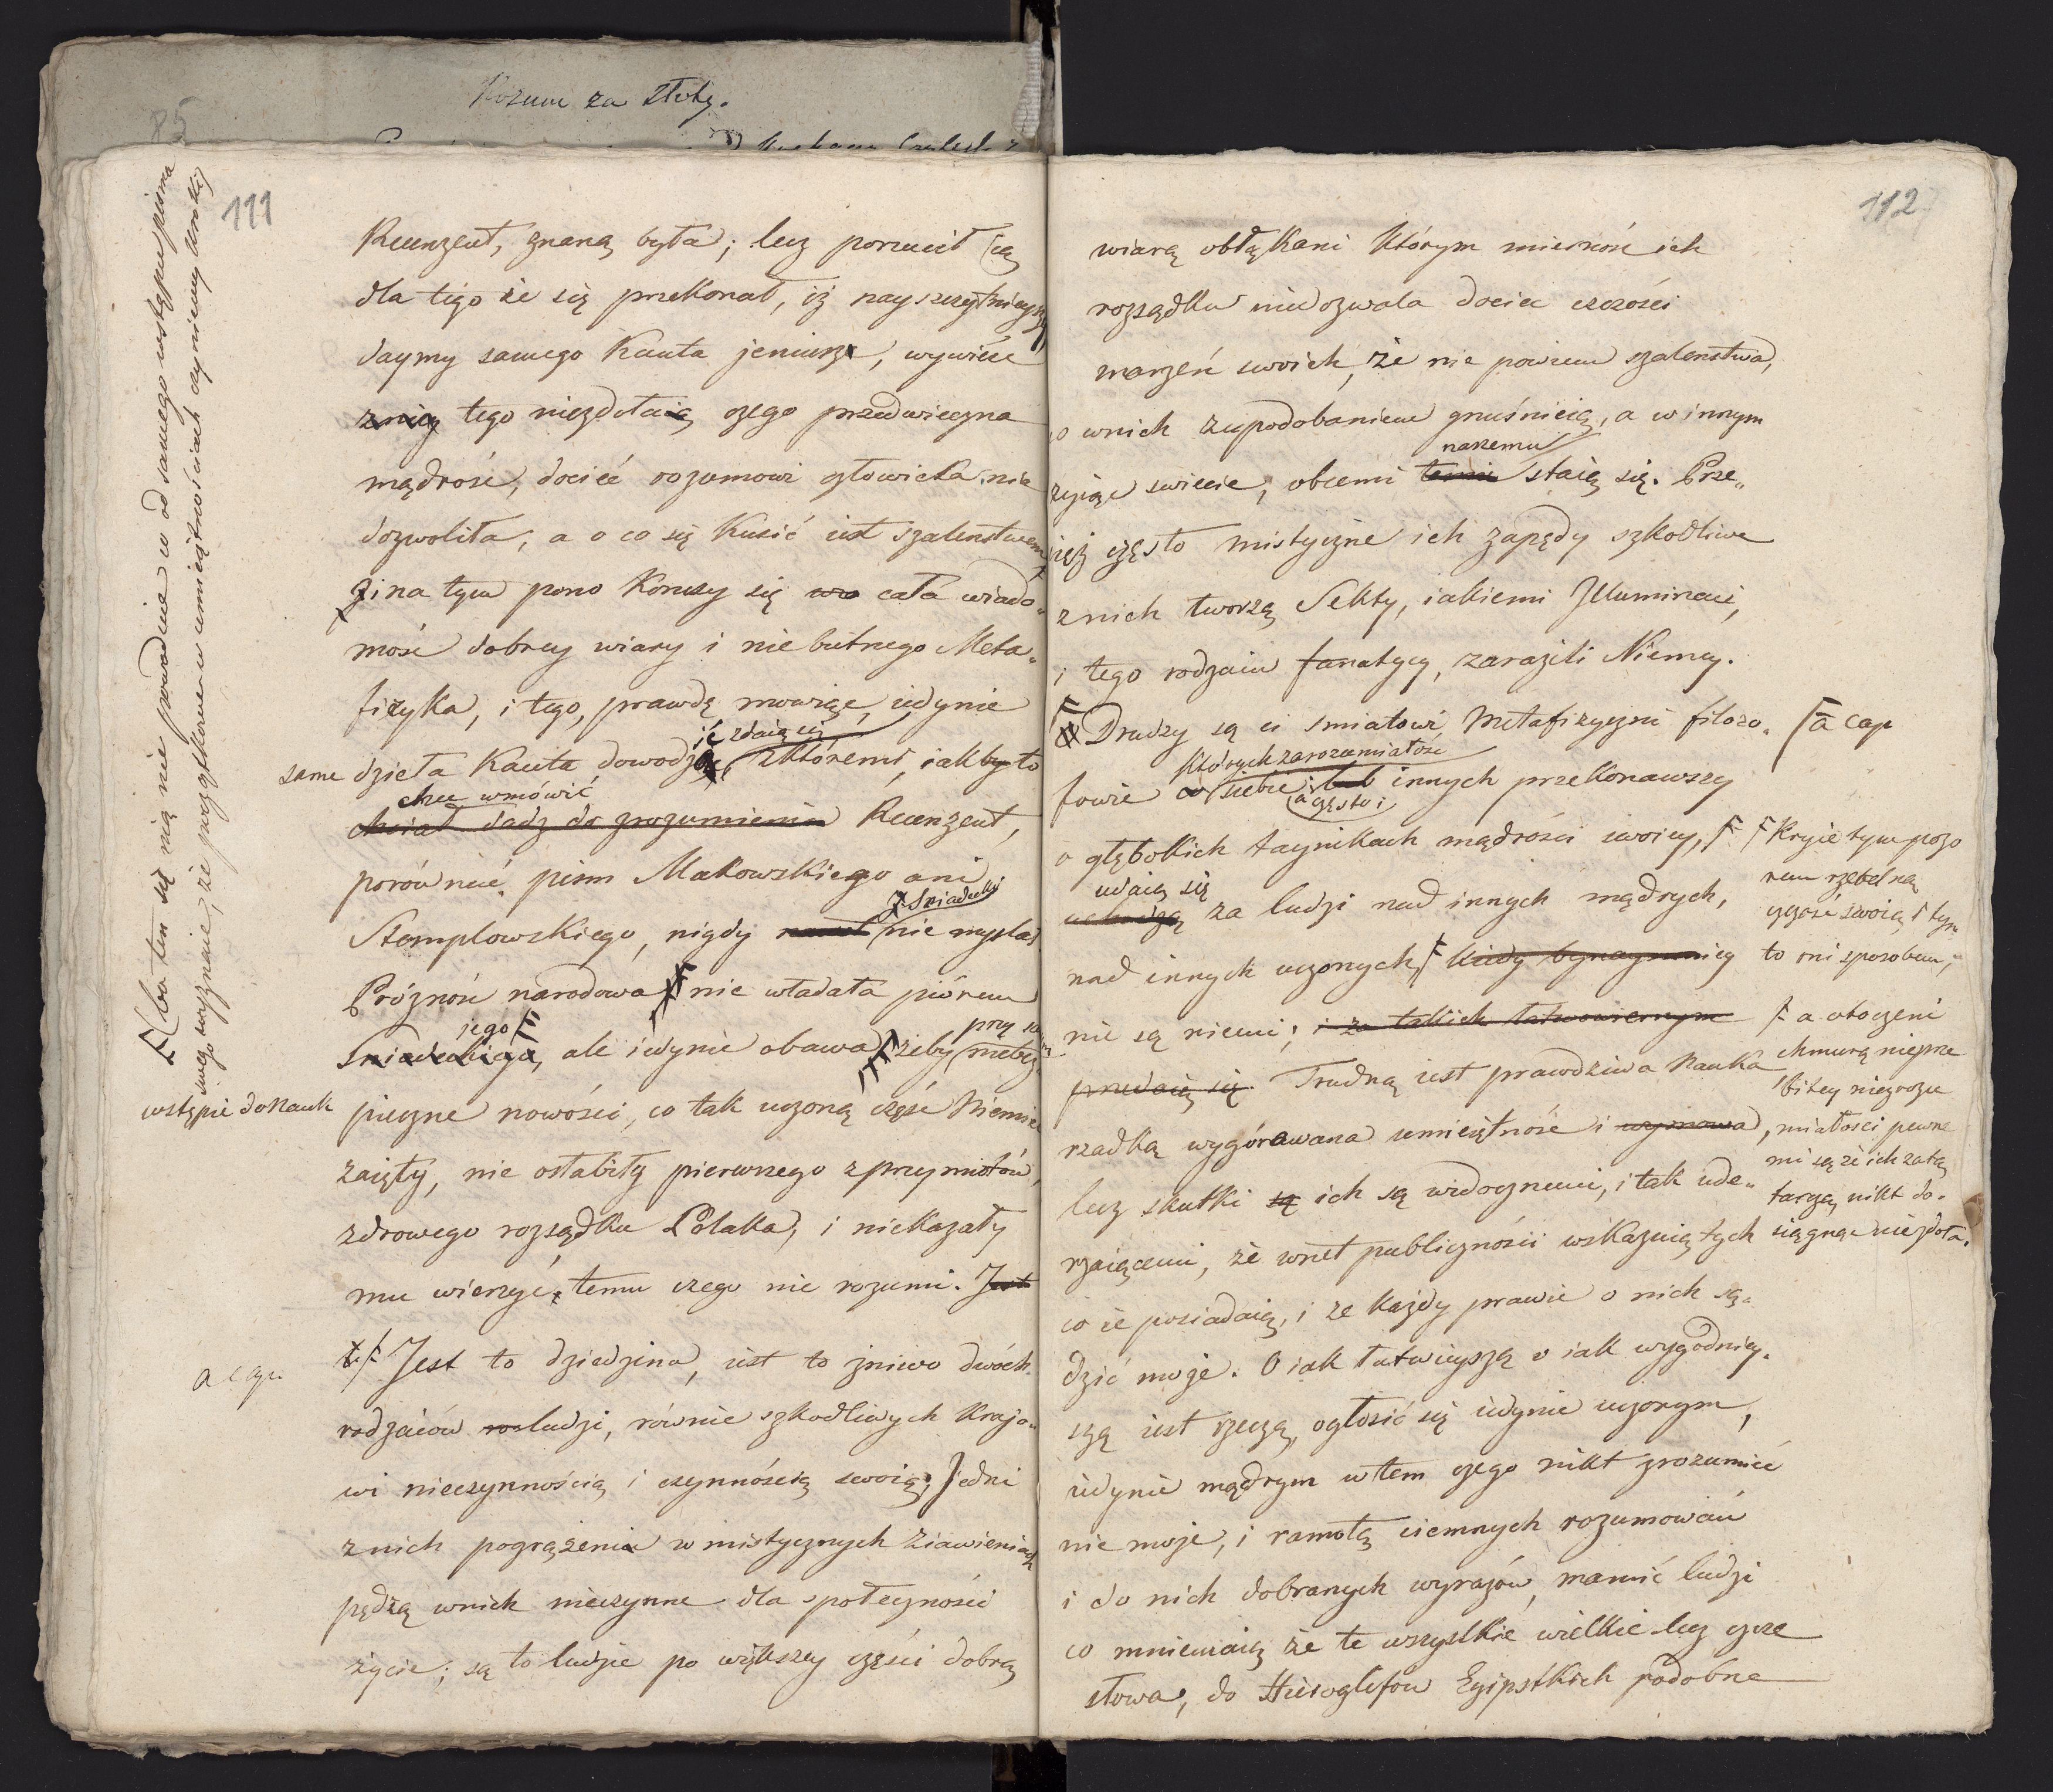 Rozum za
85
111
Recenzent, znaną była; lecz porzucił ią
dla tego że się przekonał, iż nayszczytnieyszy
daymy samego Kanta jeniusz, wywieść
z niey tego niezdołaią czego przedwieczna
mądrość, dociec rozumowi człowieka nie
dozwoliła, a o co się kusić iest szalenstwem
i na tym pono kończy się cała wiado„
mość dobrey wiary i nie butnego Meta„
fizyka, i tego, prawdę mowiąc, iedynie
ie zdaią się
same dzieła Kanta dowodzą, z któremi, iakby to
chce wmówić
chciał dadz do zrozumienia Recenzent,
porównać pism Makowskiego ani
J. Sniadecki
Stemplowskiego, nigdy nawet nie myslał.
Próżność narodowa nie władała piórem
jego
Sniadeckiego, ale iedynie obawa żeby niebez„
przy
pieczne nowości, co tak uczoną część Niemiec
zaięły, nie osłabiły pierwszego z przymiotów,
zdrowego rozsądku Polaka, i niekazały
mu wierzyć, temu czego nie rozumi. Jest
a cap.
Jest to dziedzina, iest to żniwo dwóch
rodzaiów ludzi, równie szkodliwych krajo„
wi nieczynnością i czynnością swoią; Jedni
z nich pogrążeni w mistycznych ziawieniach
pędzą w nich nieczynne dla społeczności
życie; są to ludzie po większey części dobrą
bo ten się nią nie prawdzie w od samego wstępu pisma
swego wyznaie, że początkowe w umieiętnościach czyniemy kroki
wstępie do Nauk
112
wiarą obłąkani którym mierność ich
rozsądku niedozwala dociec czczości
marzeń swoich, że nie powiem szalenstwa,
co w nich z upodobaniem gnuśnieią, a w innym
naszemu
żyiąc swiecie, obcemi temu staią się. Prze„
cięż często mistyczne ich zapędy szkodliwe
z nich tworzą Sekty, iakiemi Illuminaci,
i tego rodzaiu fanatycy, zarazili Niemcy.
Drudzy są ci smiałowi Metafizyczni filozo„
a cap
których zarozumiałość
fowie co siebie lub innych przekonawszy
a często i
o głębokich taynikach mądrości swoiey,
udaią się
uchodzą za ludzi nad innych mądrych,
nad innych uczonych, kiedy bynaymniey
nie są niemi; i za takich łatwowiernym
przedaią się. Trudną iest prawdziwa Nauka
rzadką wygórowana umieiętność i wymowa,
lecz skutki są ich są widocznemi, i tak ude„
rzaiącemi, że wnet publiczności wskazuią tych
co ie posiadaią, i że każdy prawie o nich są„
dzić może. O iak łatwieyszą o iak wygodniey„
szą iest rzeczą, ogłosić się iedynie uczonym,
iedynie mądrym w tem czego nikt zrozumieć
nie może, i ramotą ciemnych rozumowań
i do nich dobranych wyrazów, mamić ludzi
co mniemaią że te wszystkie wielkie lecz czcze
słowa, do Hieroglifów Egipskich podobne
Kryie tym pozo
rem rzetelną
czczość swoią i tym
to oni sposobem,
a otoczeni
chmurą nieprze
bitey niezrozu
miałości pewne
mi są że ich za tą
tarczą nikt do„
siągnąć niezdoła.